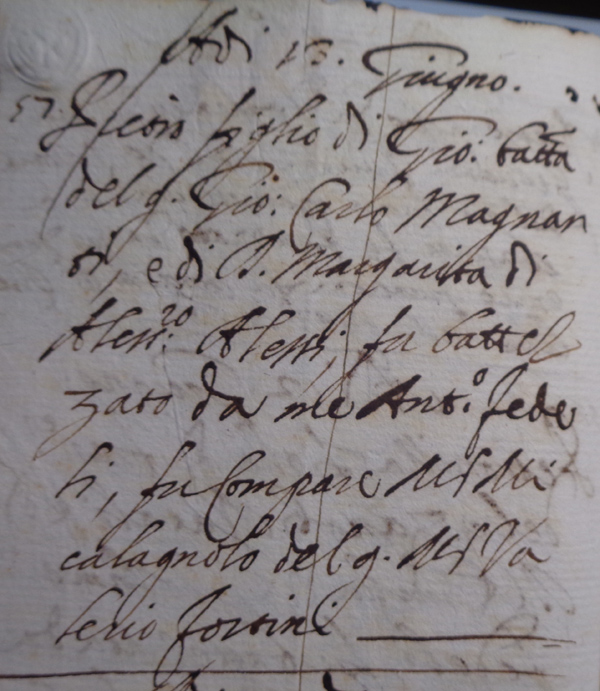 Adi 13. Giugno.
57 figlio di Gio: batta
del q. Gio: Carlo Magnan
ti, e di D. Margarita di
Aless.ro Alessi, fu battez
zato da me Ant.o Fede
li, fu Compare Ms Mi
calagnolo del q. Ms Va
lerio Fortini